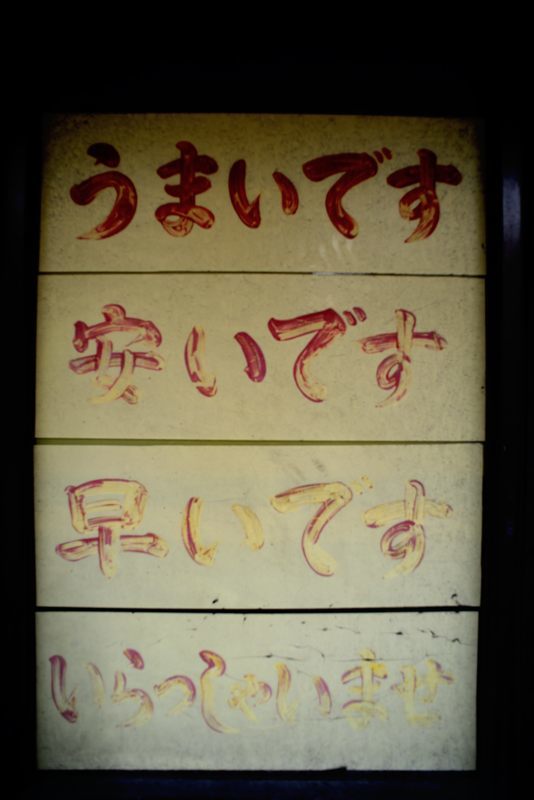 うまいです
安いです
早いです
いらっしゃいませ